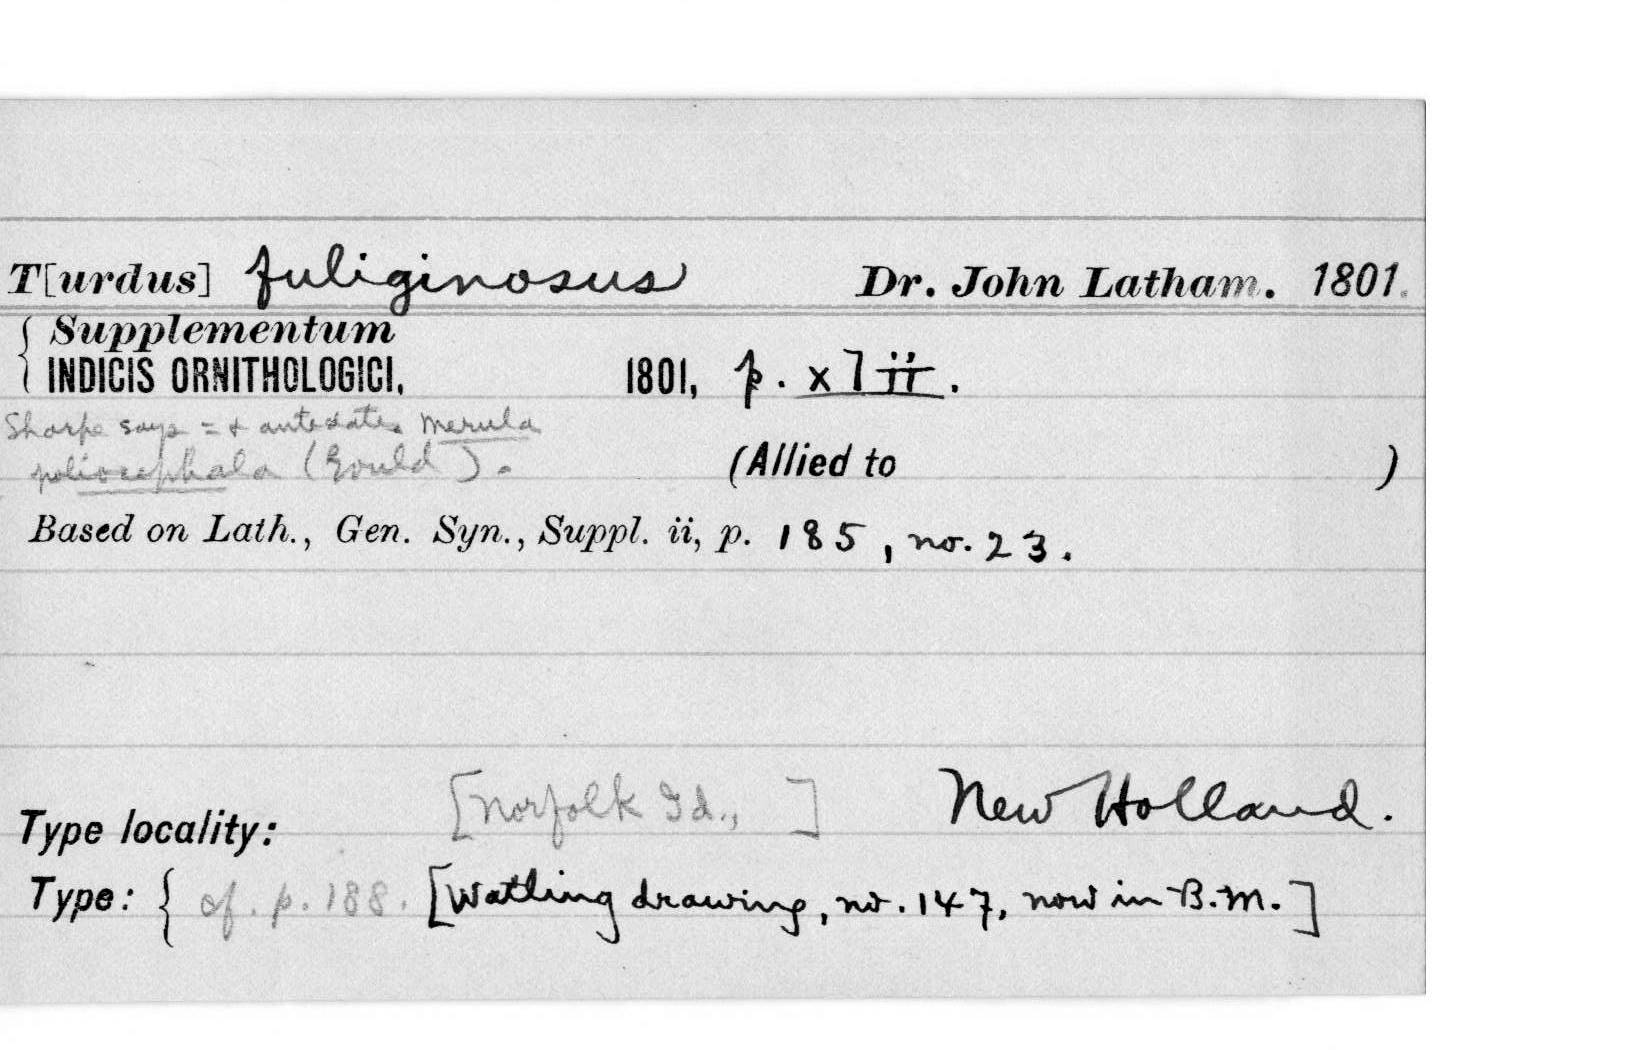 T[urdus] fuliginosus Dr. John Latham. 1801.
{ Supplementum
INDICIS ORNITHOLOGICI, 1801, p. xlii.
Sharpe says = & antedates Merula
poliocephala (Gould). (Allied to )
Based on Lath., Gen. Syn., Suppl. ii, p. 185, no. 23.
Type locality: [Norfolk Id., ] New Holland.
Type: { cf. p. 188. [Watling drawing, no. 147, now in B.M.]